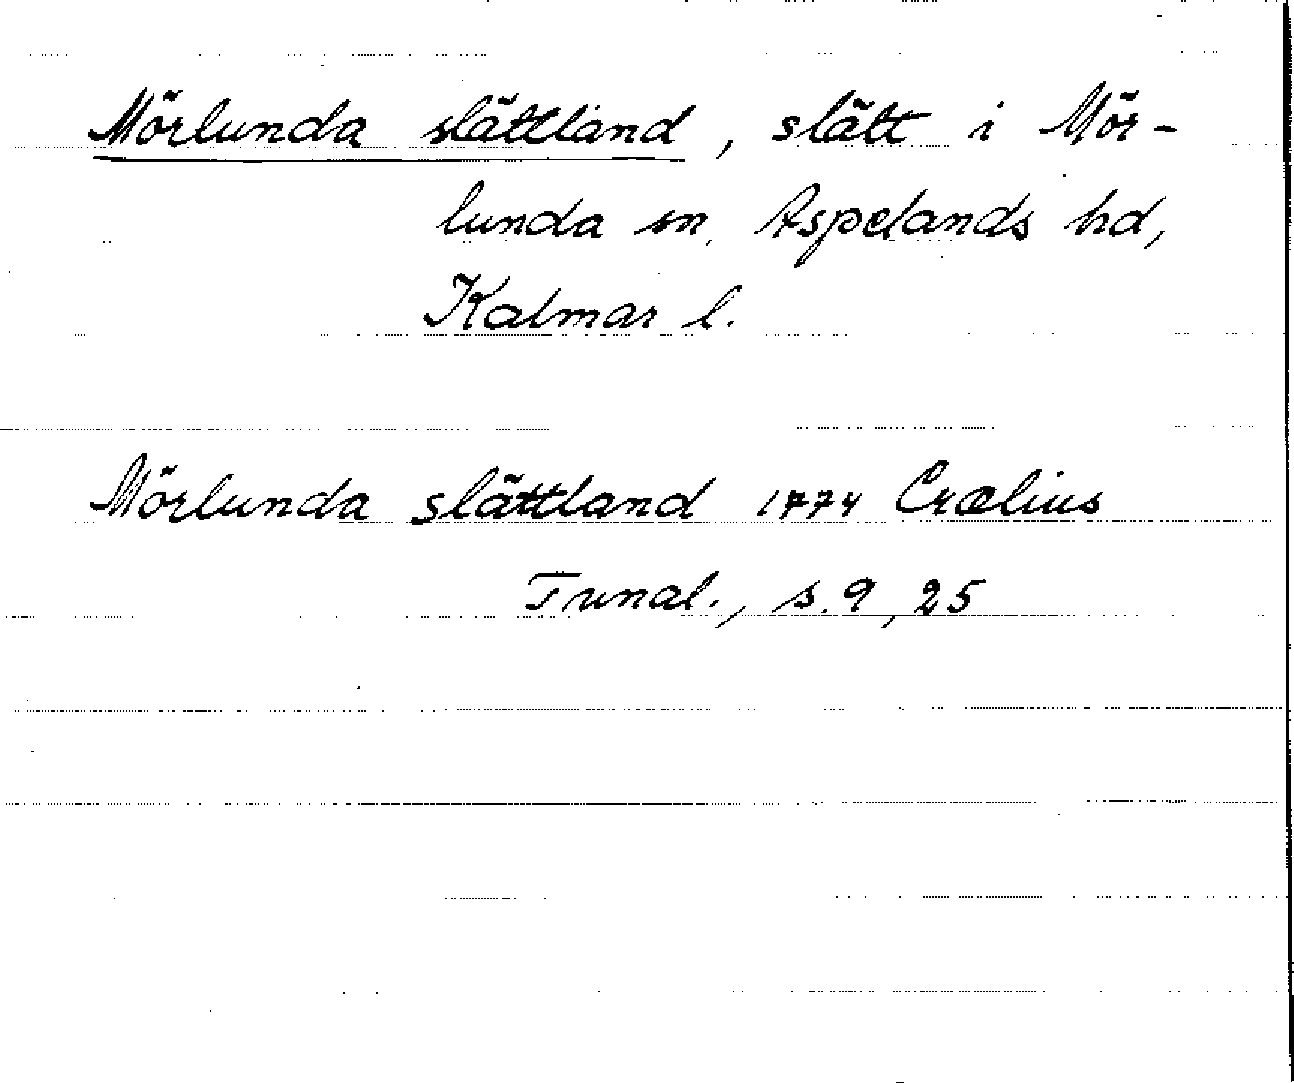 Mörlunda slättland, slätt i Mör-
lunda sn, Aspelands hd,
Kalmar l.
Mörlunda slättland 1774 Crælius
Tunal., s. 9, 25